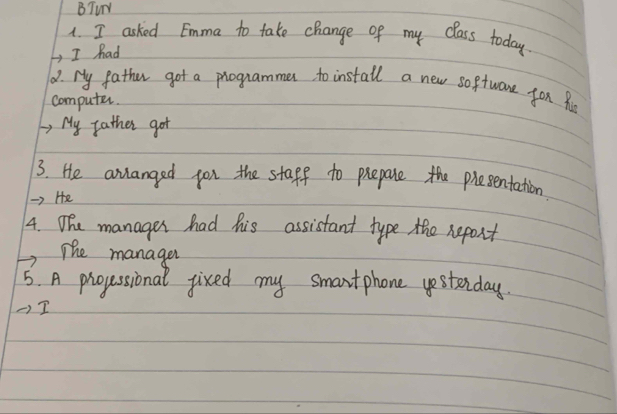 BTVN
1. I asked Emma to take change of my class today.
→ I had
2. My father got a programmer to install a new software for his
computer.
→ My father got
3. He arranged for the staff to prepare the presentation.
→ He
4. The manager had his assistant type the report
→ The manager
5. A professional fixed my smartphone yesterday.
→ I